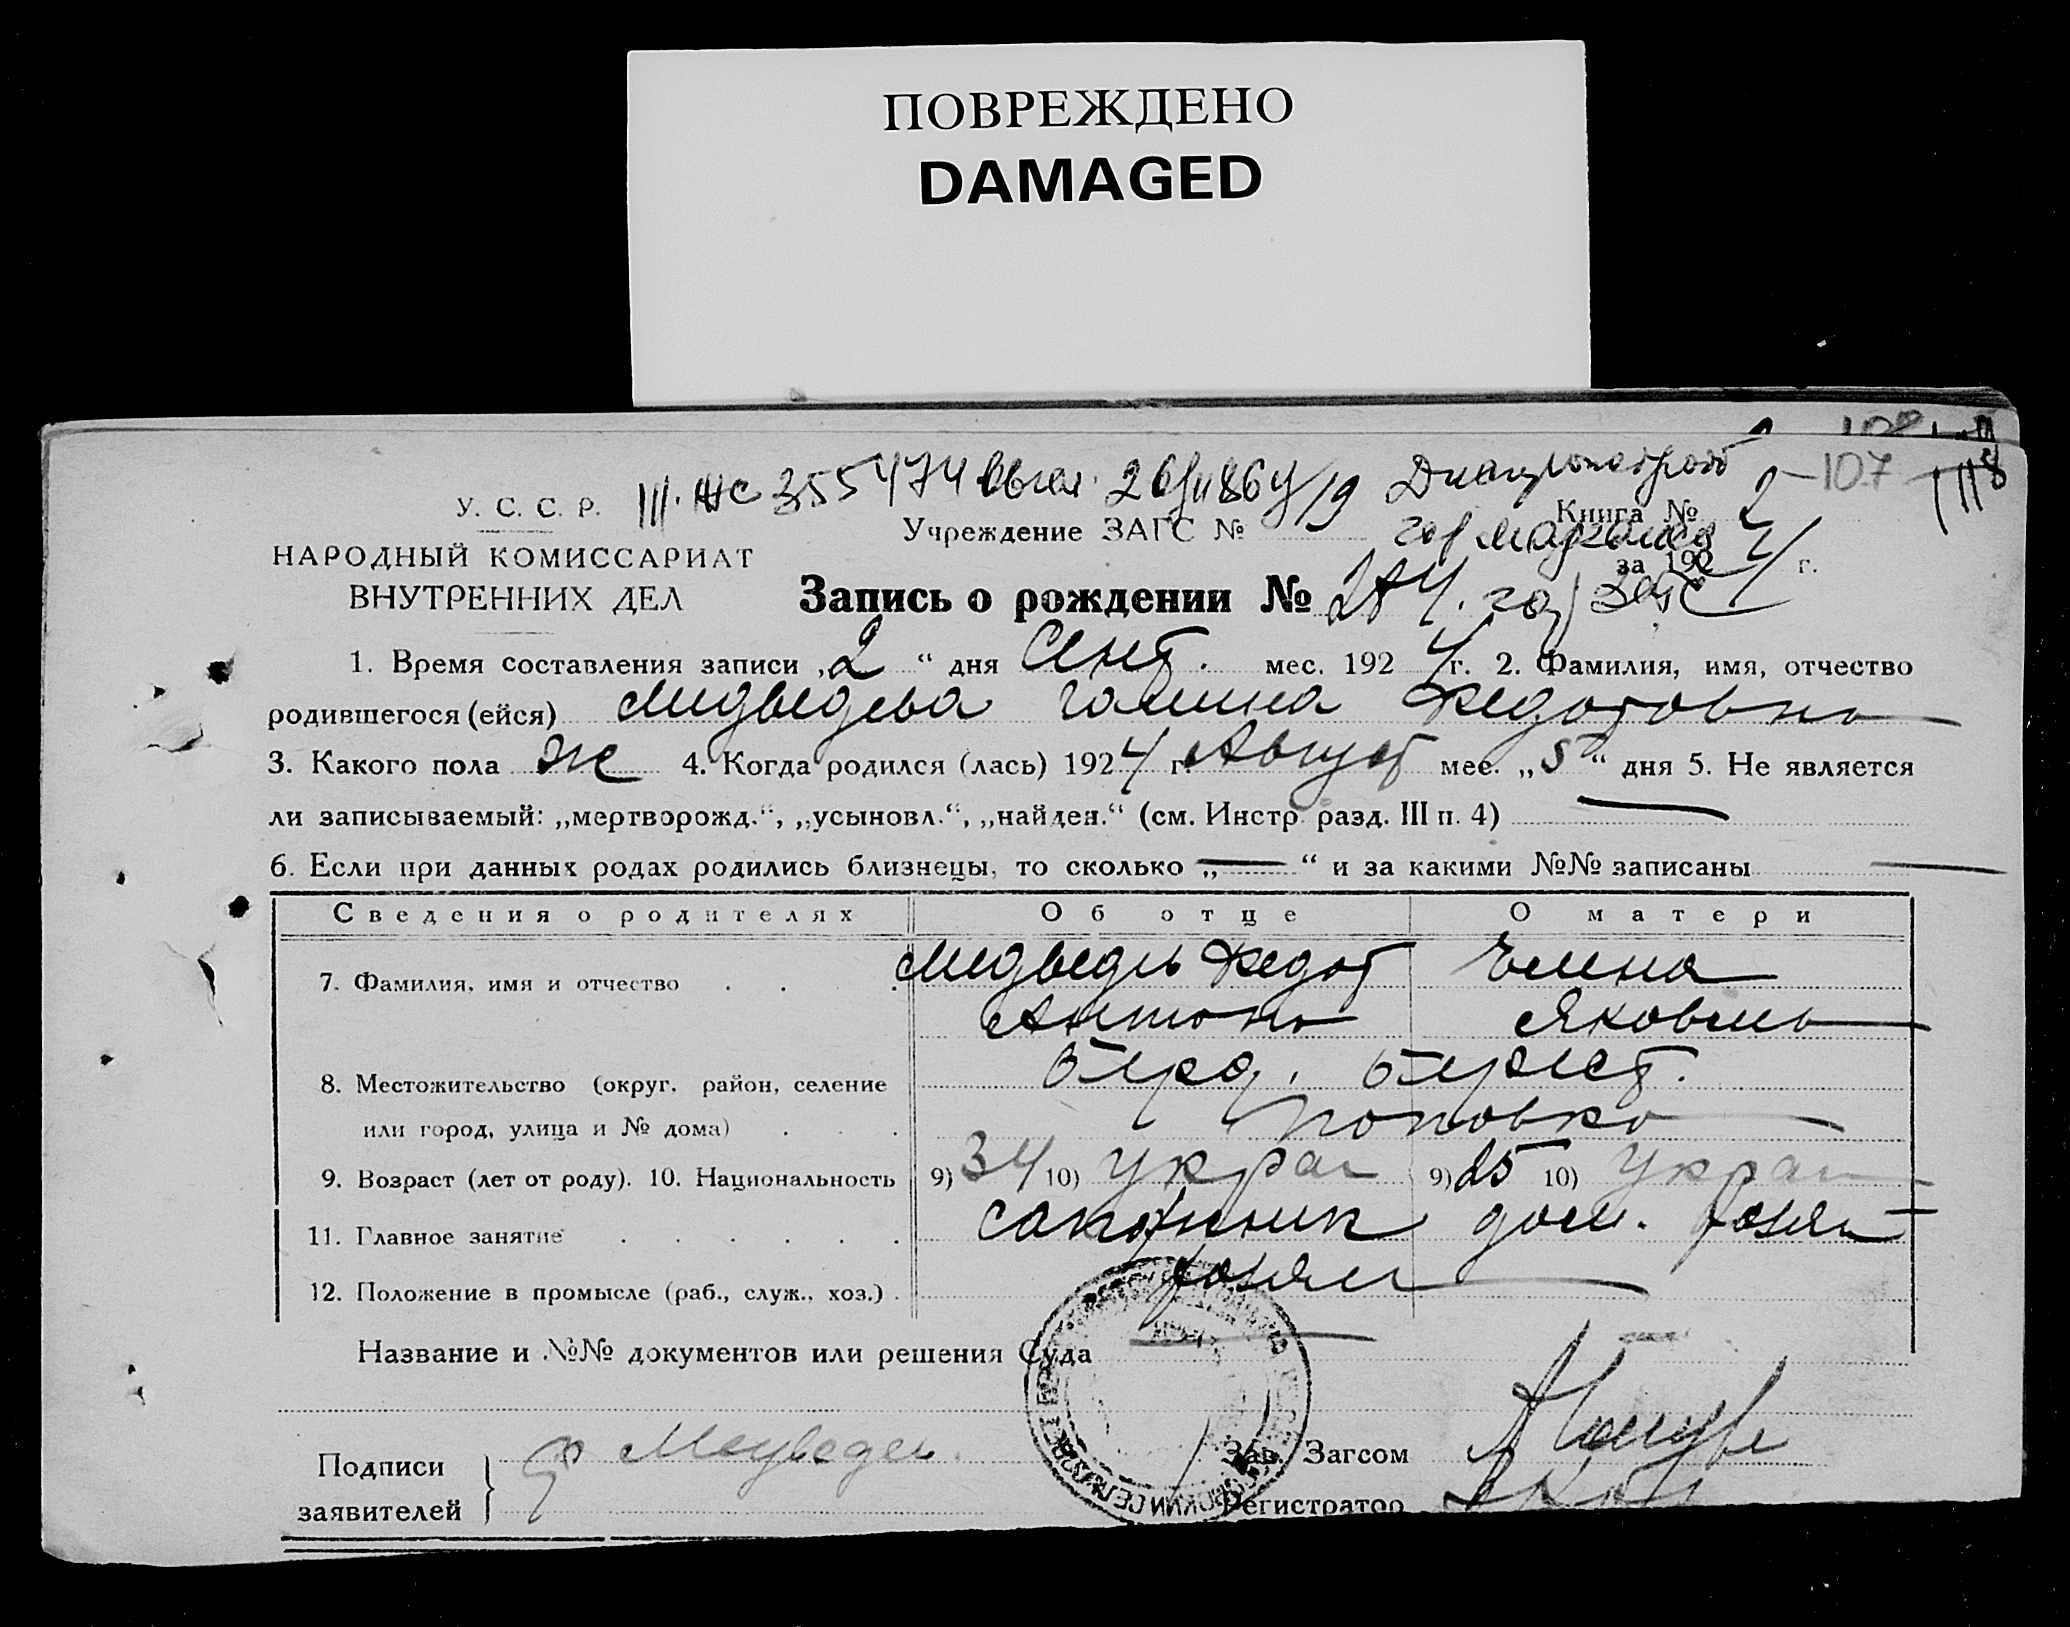 ПОВРЕЖДЕНО
DAMAGED
107
У. С. С. Р. III. ЖС 355474 26/II 86 г
Учреждение ЗАГС № Книга № 2
НАРОДНЫЙ КОМИССАРИАТ за 1924 г.
ВНУТРЕННИХ ДЕЛ Запись о рождении № загс
1. Время составления записи „2“ дня Сент. мес. 1924 г. 2. Фамилия, имя, отчество
родившегося (ейся) Медведева Галина Федотовна
3. Какого пола Ж 4. Когда родился (лась) 1924 г. Август мес. „5“ дня 5. Не является
ли записываемый: „мертворожд.“, „усыновл.“, „найден.“ (см. Инстр. разд. III п. 4) —
6. Если при данных родах родились близнецы, то сколько „—“ и за какими №№ записаны —
Сведения о родителях Об отце О матери
7. Фамилия, имя и отчество Медведь Федот Елена
Антонов Яковлев
8. Местожительство (округ, район, селение Берд. Берест.
или город, улица и № дома) Поповка
9. Возраст (лет от роду). 10. Национальность 9) 34 10) Украи 9) 25 10) Украи
11. Главное занятие сапожник дом. хозяй
12. Положение в промысле (раб., служ., хоз.) хозяи
Название и №№ документов или решения Суда —
Подписи Ф Медведев Зав. Загсом
заявителей Регистратор